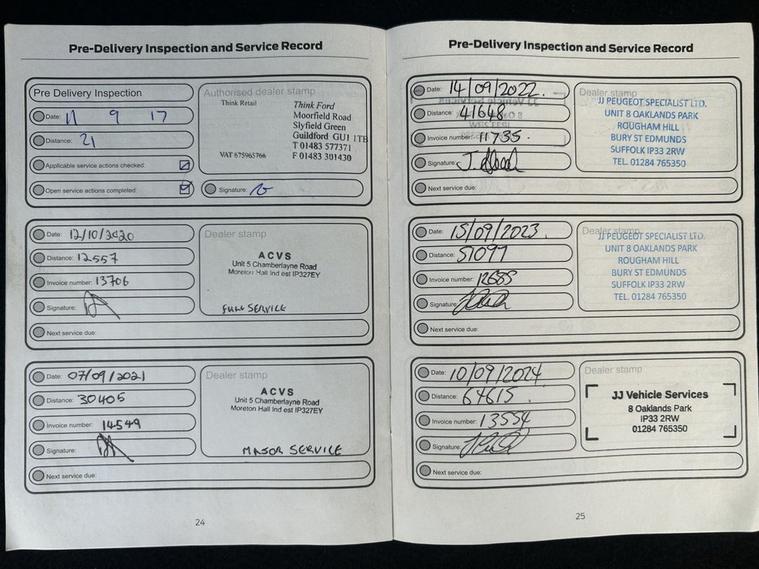 Pre-Delivery Inspection and Service Record
Pre Delivery Inspection
Date: 11 9 17
Distance: 21
Applicable service actions checked
Open service actions completed
Authorised dealer stamp
Think Retail
Think Ford
Moorfield Road
Slyfield Green
Guildford GU1 1TB
T 01483 577371
VAT 675965766
F 01483 301430
Signature:
Date: 12/10/2020
Distance: 12557
Invoice number: 13706
Signature:
Next service due:
Dealer stamp
ACVS
Unit 5 Chamberlayne Road
Moreton Hall Ind est IP327EY
FULL SERVICE
Date: 07/09/2021
Distance: 30405
Invoice number: 14549
Signature:
Next service due:
Dealer stamp
ACVS
Unit 5 Chamberlayne Road
Moreton Hall Ind est IP327EY
MAJOR SERVICE
24
Pre-Delivery Inspection and Service Record
Date: 14/09/2022.
Distance: 41648.
Invoice number: 11735.
Signature:
Next service due:
Dealer stamp
JJ PEUGEOT SPECIALIST LTD.
UNIT 8 OAKLANDS PARK
ROUGHAM HILL
BURY ST EDMUNDS
SUFFOLK IP33 2RW
TEL. 01284 765350
Date: 15/09/2023.
Distance: 51099
Invoice number:
Signature:
Next service due:
Dealer stamp
JJ PEUGEOT SPECIALIST LTD.
UNIT 8 OAKLANDS PARK
ROUGHAM HILL
BURY ST EDMUNDS
SUFFOLK IP33 2RW
TEL. 01284 765350
Date: 10/09/2024.
Distance: 64615.
Invoice number: 13554
Signature:
Next service due:
Dealer stamp
JJ Vehicle Services
8 Oaklands Park
IP33 2RW
01284 765350
25